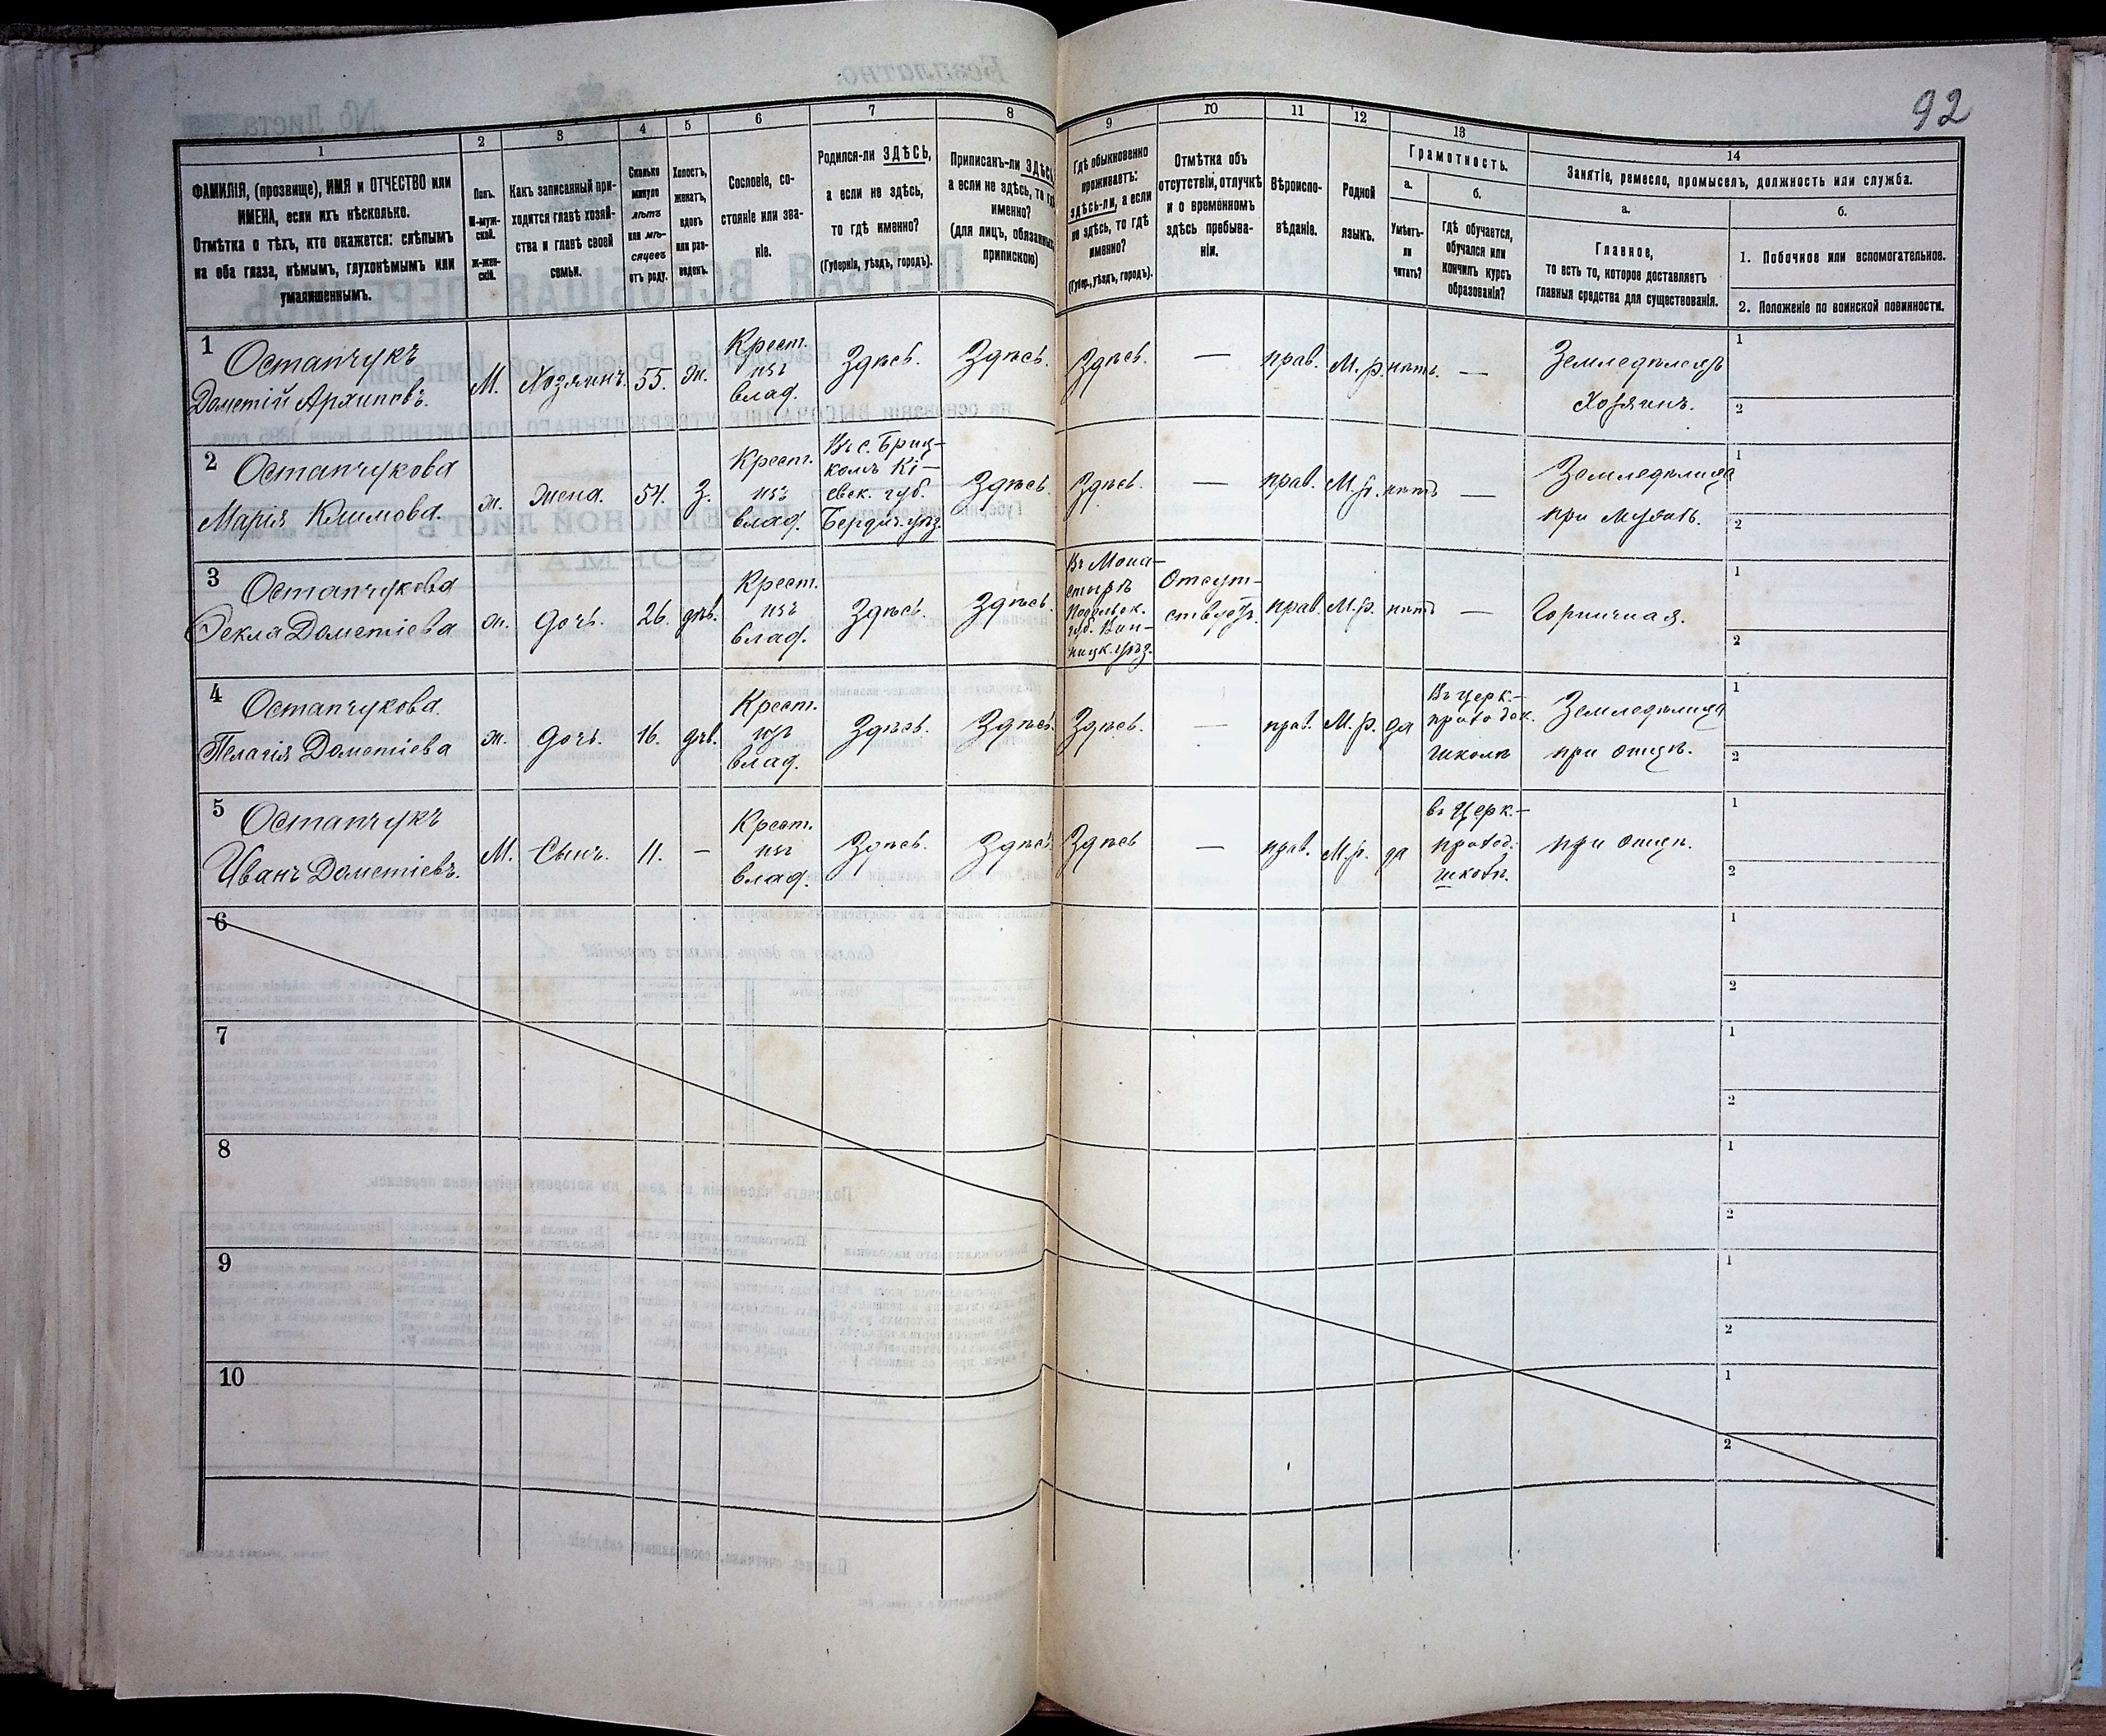 92
1
2
3
4
5
6
7
8
9
10
11
12
13
14
ФАМИЛІЯ, (прозвище), ИМЯ и ОТЧЕСТВО или
ИМЕНА, если ихъ нѣсколько.
Отмѣтка о тѣхъ, кто окажется: слѣпымъ
на оба глаза, нѣмымъ, глухонѣмымъ или
умалишеннымъ.
Полъ.
М-муж-
ской.
Ж-жен-
скій.
Какъ записанный при-
ходится главѣ хозяй-
ства и главѣ своей
семьи.
Сколько
минуло
лѣтъ
или мѣ-
сяцевъ
отъ роду.
Холостъ,
женатъ,
вдовъ
или раз-
веденъ.
Сословіе, со-
стояніе или зва-
ніе.
Родился-ли ЗДѢСЬ,
а если не здѣсь,
то гдѣ именно?
(Губернія, уѣздъ, городъ).
Приписанъ-ли ЗДѢСЬ,
а если не здѣсь, то гдѣ
именно?
(для лицъ, обязанныхъ
припискою)
Гдѣ обыкновенно
проживаетъ:
здѣсь-ли, а если
не здѣсь, то гдѣ
именно?
(Губер., уѣздъ, городъ).
Отмѣтка объ
отсутствіи, отлучкѣ
и о временномъ
здѣсь пребыва-
ніи.
Вѣроиспо-
вѣданіе.
Родной
языкъ.
Грамотность.
а.
Умѣетъ-
ли
читать?
б.
Гдѣ обучается,
обучался или
кончилъ курсъ
образованія?
Занятіе, ремесло, промыселъ, должность или служба.
а.
Главное,
то есть то, которое доставляетъ
главныя средства для существованія.
б.
1. Побочное или вспомогательное.
2. Положеніе по воинской повинности.
1
Остапчукъ
Дометій Архиповъ.
М.
Хозяинъ.
55.
ж.
Крест.
изъ
влад.
Здѣсь.
Здѣсь.
Здѣсь.
—
прав.
М.р.
нѣтъ.
—
Земледѣлецъ
Хозяинъ.
1
2
2
Остапчукова
Марія Климова.
ж.
Жена.
54.
З.
Крест.
изъ
влад.
Въ с. Бриц-
комъ Кі-
евск. губ.
Бердич. уѣз.
Здѣсь.
Здѣсь.
—
прав.
М.р.
нѣтъ
—
Земледѣлица
при мужѣ.
1
2
3
Остапчукова
Ѳекла Дометіева
ж.
Дочь.
26.
дѣв.
Крест.
изъ
влад.
Здѣсь.
Здѣсь.
Въ Мона-
стырѣ
Подольск.
губ. Вин-
ницк. уѣз.
Отсут-
ствуетъ.
прав.
М.р.
нѣтъ
—
Горничная.
1
2
4
Остапчукова.
Пелагія Дометіева
ж.
Дочь.
16.
дѣв.
Крест.
изъ
влад.
Здѣсь.
Здѣсь.
Здѣсь.
—
прав.
М.р.
да
Въ церк.-
приход.
школѣ
Земледѣлица
при отцѣ.
1
2
5
Остапчукъ
Иванъ Дометіевъ.
М.
Сынъ.
11.
—
Крест.
изъ
влад.
Здѣсь.
Здѣсь.
Здѣсь
—
прав.
М.р.
да
въ Церк.-
приход.
школѣ.
при отцѣ.
1
2
6
1
2
7
1
2
8
1
2
9
1
2
10
1
2